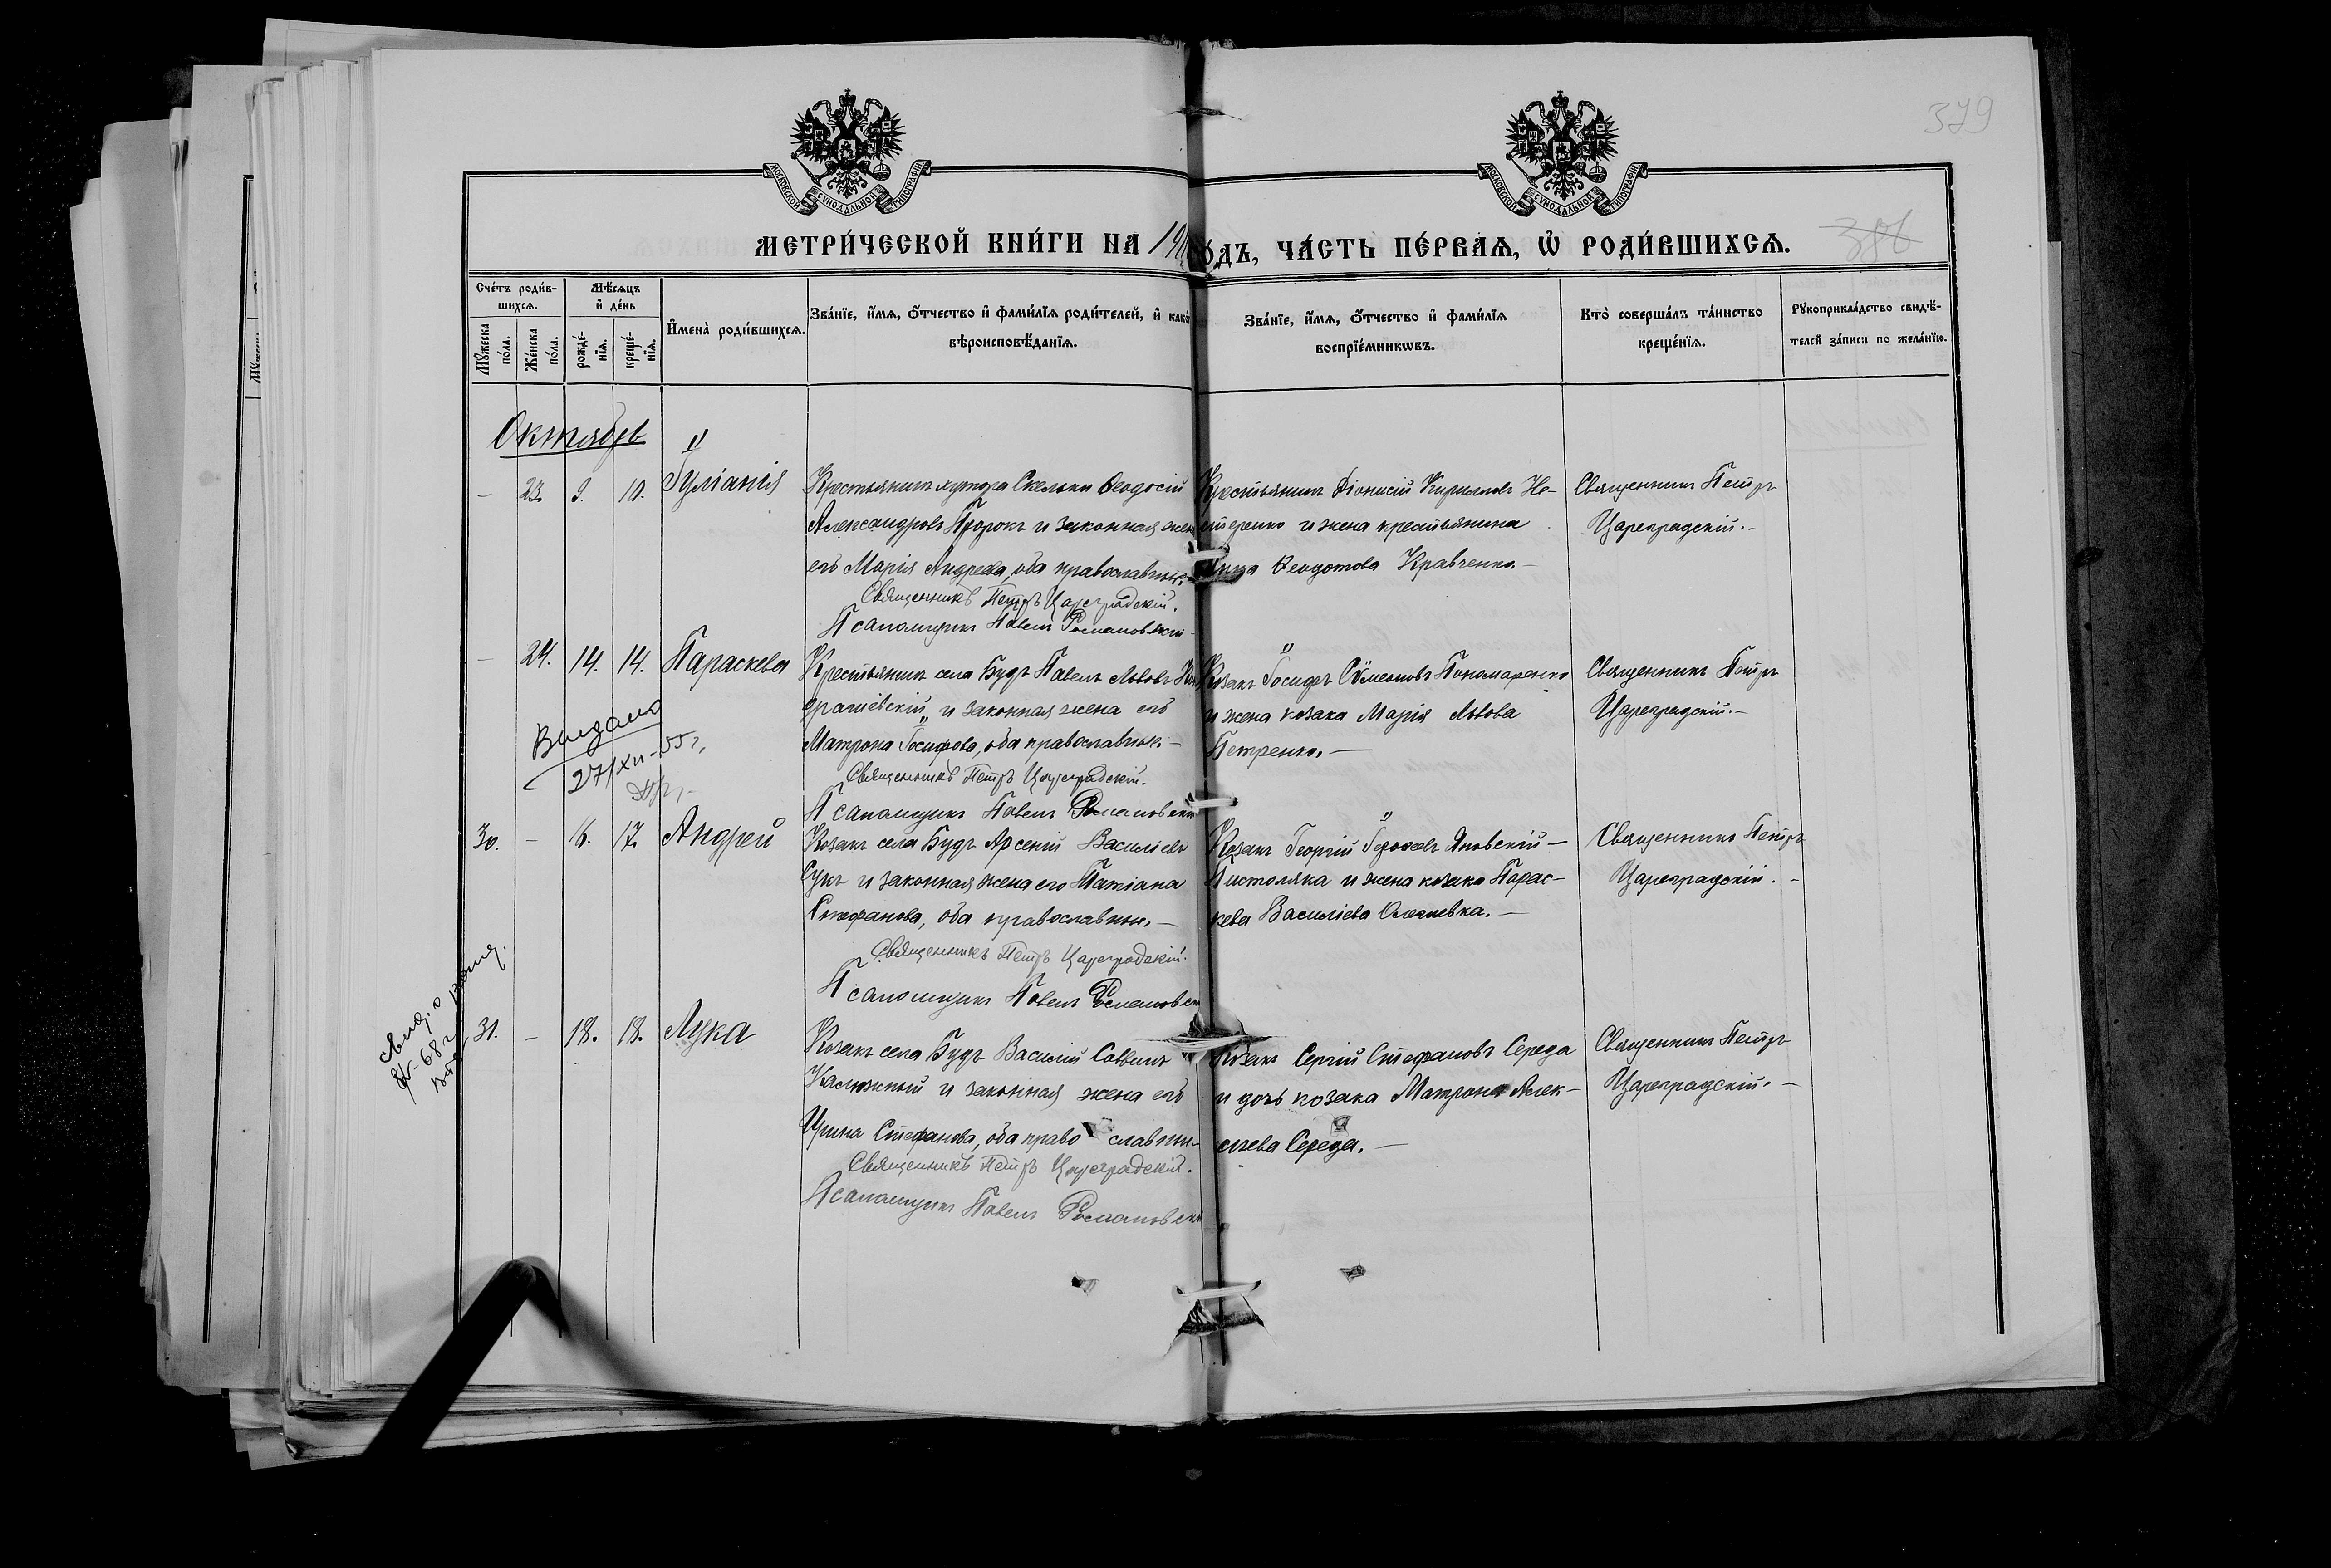 379
МОСКОВСКОЙ СѴНОДАЛЬНОЙ ТИПОГРАФІИ
МОСКОВСКОЙ СѴНОДАЛЬНОЙ ТИПОГРАФІИ
МЕТРИ́ЧЕСКОЙ КНИ́ГИ НА 190
ГО́ДЪ, ЧА́СТЬ ПЕ́РВАѦ, Ѡ҆ РОДИ́ВШИХСѦ.
386
Сче́тъ роди́в-
шихсѧ.
Мѣ́сѧцъ
и҆ де́нь
Мꙋ́жеска по́ла.
Же́нска по́ла.
рожде́-
нїѧ.
креще́-
нїѧ.
И҆мена̀ роди́вшихсѧ.
Зва́нїе, и҆́мѧ, ѻ҆́тчество и҆ фами́лїѧ роди́телей, и҆ како́
вѣроисповѣ́данїѧ.
Зва́нїе, и҆́мѧ, ѻ҆́тчество и҆ фами́лїѧ
воспрїе́мникѡвъ.
Кто̀ соверша́лъ та́инство
креще́нїѧ.
Рꙋкоприкла́дство свидѣ́-
телей за́писи по жела́нїю.
Октябрь
- 23. 9. 10. Іуліанія
Крестьянинъ хутора Скельки Ѳеодосій
Александровъ Пророкъ и законная жена
его Марія Андреева, оба православные.
Священникъ Петръ Цареградскій.
Псаломщикъ Павелъ Романовскій
Крестьянинъ Діонисій Кирилловъ Не-
стеренко и жена крестьянина
Ѳеодотова Кравченко.-
Священникъ Петръ
Цареградскій.-
- 24. 14. 14. Параскева
Крестьянинъ села Будъ Павелъ Львовъ Кон
драшевскій и законная жена его
Матрона Іосифова, оба православные.-
Священникъ Петръ Цареградскій.
Псаломщикъ Павелъ Романовскій
Козакъ Іосифъ Сѵмеоновъ Пономаренко
и жена козака Марія Львова
Петренко.-
Священникъ Петръ
Цареградскій.-
Выдано
27/XII-55 г.
30. - 16. 17. Андрей
Козакъ села Будъ Арсеній Василіевъ
Сукъ и законная жена его Татіана
Стефанова, оба православны.-
Священникъ Петръ Цареградскій.
Псаломщикъ Павелъ Романовск
Козакъ Георгій Яновскій-
Пистоляка и жена козака Парас-
кева Василіева
Священникъ Петръ
Цареградскій.-
31. - 18. 18. Лука
Козакъ села Будъ Василій Саввинъ
Калюжный и законная жена его
Ирина Стефанова, оба православны-
Священникъ Петръ Цареградскій.
Псаломщикъ Павелъ Романовск
Козакъ Сергій Стефановъ Середа
и дочь козака Матрона Алек-
сѣева Середа.-
Священникъ Петръ
Цареградскій.-